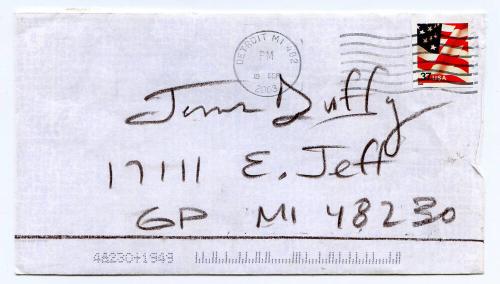 DETROIT MI 482
PM
2003
37 USA
Duffy
17111 E. Jeff
GP MI 48230
48230+1949